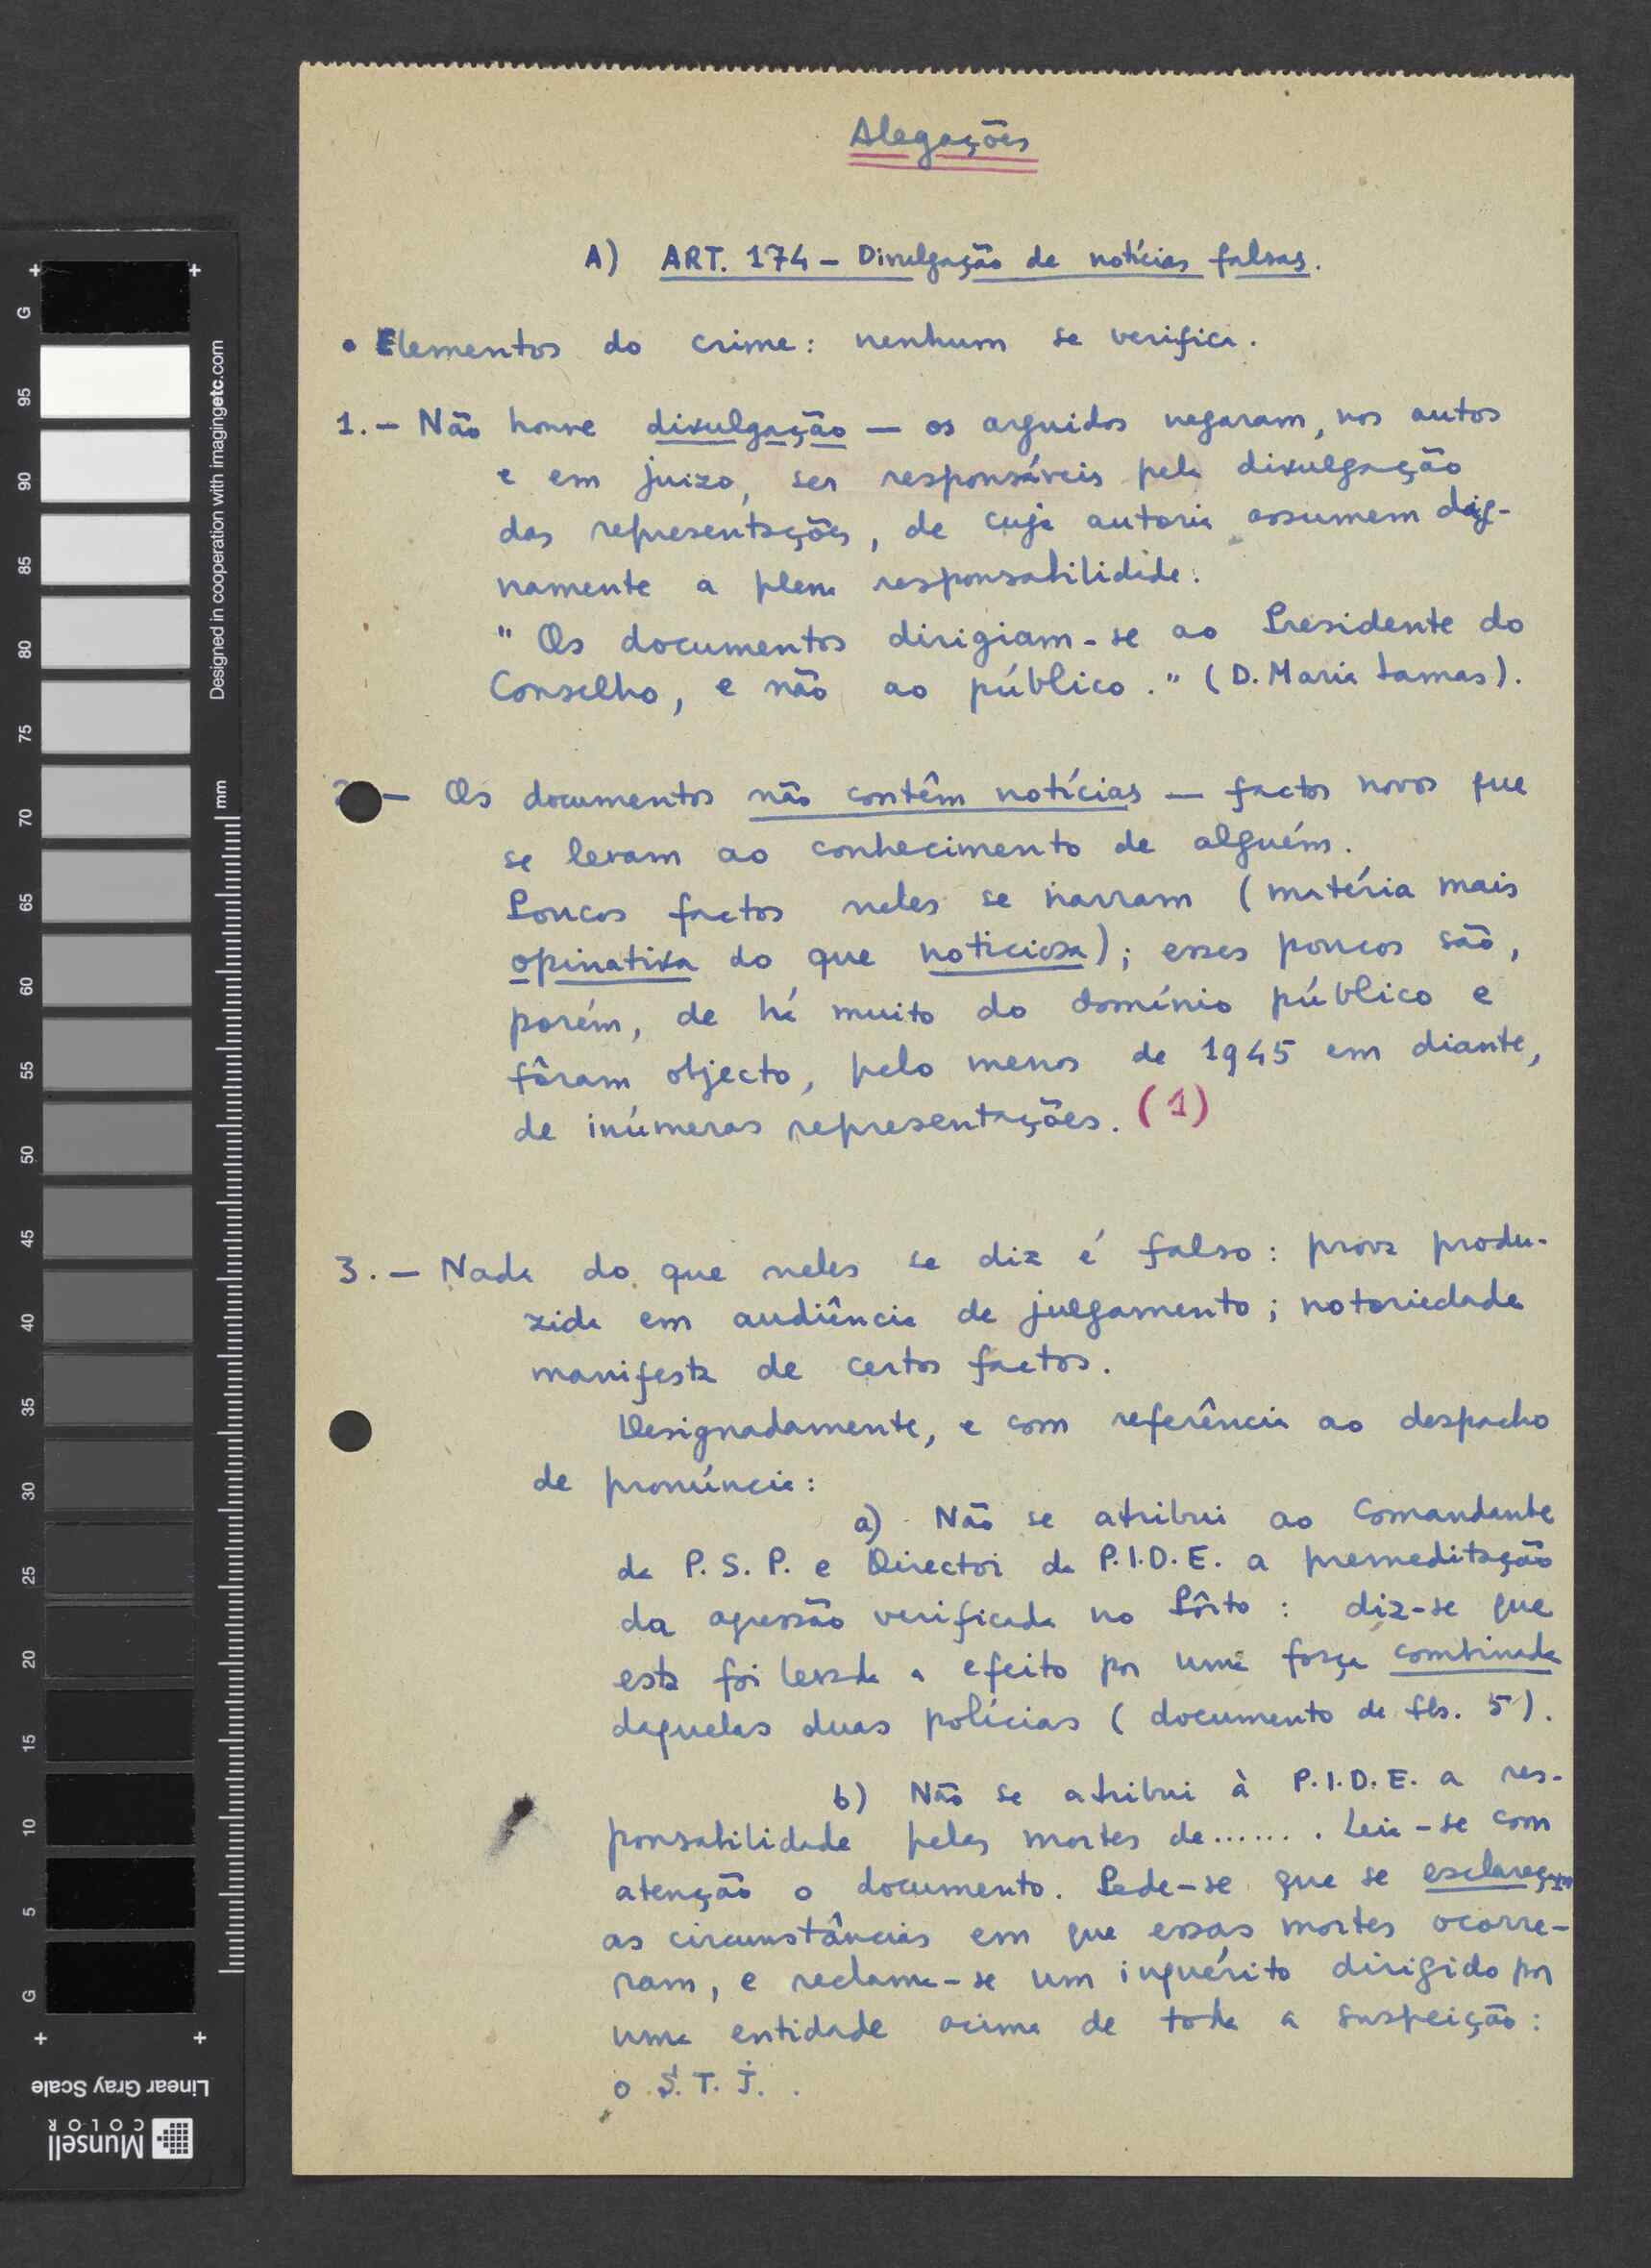 Alegações
A) ART. 174 – Divulgação de notícias falsas.
• Elementos do crime: nenhum se verifica.
1. – Não houve divulgação — os arguidos negaram, nos autos
e em juizo, ser responsáveis pela divulgação
das representações, de cuja autoria assumem dig-
namente a plena responsabilidade.
" Os documentos dirigiam-se ao Presidente do
Conselho, e não ao público." (D. Maria Lamas).
2 – Os documentos não contêm notícias — factos novos que
se levam ao conhecimento de alguém.
Poucos factos neles se narram (matéria mais
opinativa do que noticiosa); esses poucos são,
porém, de há muito do domínio público e
fôram objecto, pelo menos de 1945 em diante,
de inúmeras representações. (1)
3. – Nada do que neles se diz é falso: prova produ-
zida em audiência de julgamento; notoriedade
manifesta de certos factos.
Designadamente, e com referência ao despacho
de pronúncia:
a) Não se atribui ao Comandante
da P. S. P. e Director da P.I.D.E. a premeditação
da agressão verificada no Pôrto: diz-se que
esta foi levada a efeito por uma força combinada
daquelas duas polícias (documento de fls. 5).
b) Não se atribui à P.I.D.E. a res-
ponsabilidade pelas mortes de....... Leia-se com
atenção o documento. Pede-se que se esclareçam
as circunstâncias em que essas mortes ocorre-
ram, e reclama-se um inquérito dirigido por
uma entidade acima de toda a suspeição:
o S. T. J. .
G
95
90
85
80
75
70
65
60
55
50
45
40
35
30
25
20
15
10
5
G
Designed in cooperation with imagingetc.com
mm
Linear Gray Scale
Munsell
COLOR